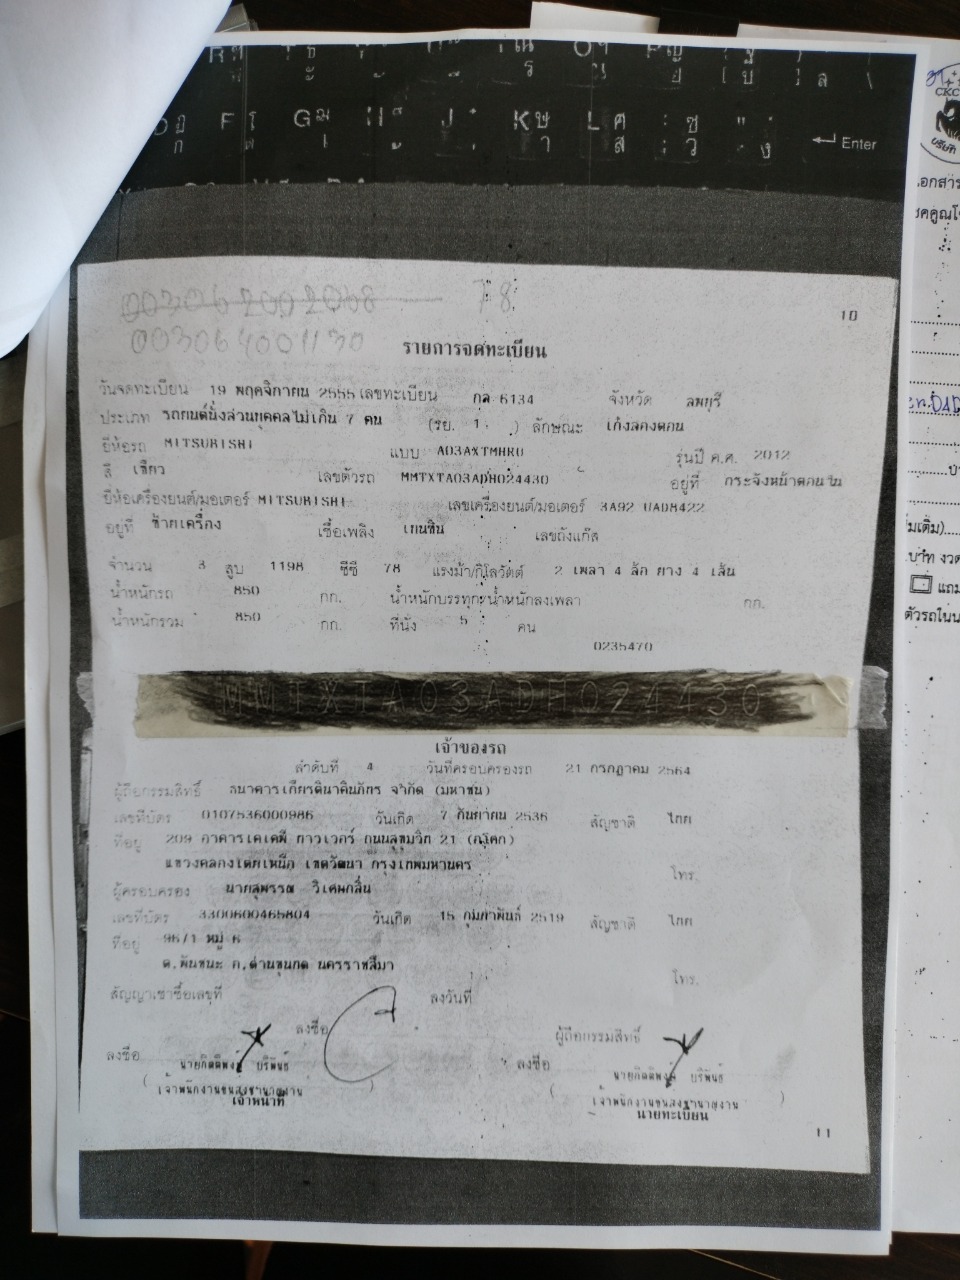 Enter
003062002068 78
003064001130
10
รายการจดทะเบียน
วันจดทะเบียน 19 พฤศจิกายน 2555 เลขทะเบียน กล 6134 จังหวัด ลพบุรี
ประเภท รถยนต์นั่งส่วนบุคคลไม่เกิน 7 คน (รย. 1 ) ลักษณะ เก๋งสองตอน
ยี่ห้อรถ MITSUBISHI แบบ A03AXTMHRU รุ่นปี ค.ศ. 2012
สี เขียว เลขตัวรถ MMTXTA03ADH024430 อยู่ที่ กระจังหน้าตอนใน
ยี่ห้อเครื่องยนต์/มอเตอร์ MITSUBISHI เลขเครื่องยนต์/มอเตอร์ 3A92 UAD8422
อยู่ที่ ซ้ายเครื่อง เชื้อเพลิง เบนซิน เลขถังแก๊ส
จำนวน 3 สูบ 1198 ซีซี 78 แรงม้า/กิโลวัตต์ 2 เพลา 4 ล้อ ยาง 4 เส้น
น้ำหนักรถ 850 กก. น้ำหนักบรรทุก/น้ำหนักลงเพลา กก.
น้ำหนักรวม 850 กก. ที่นั่ง 5 คน
0235470
MMTXTA03ADH024430
เจ้าของรถ
ลำดับที่ 4 วันที่ครอบครองรถ 21 กรกฎาคม 2564
ผู้ถือกรรมสิทธิ์ ธนาคารเกียรตินาคินภัทร จำกัด (มหาชน)
เลขที่บัตร 0107536000986 วันเกิด 7 กันยายน 2536 สัญชาติ ไทย
ที่อยู่ 209 อาคารเคเคพี ทาวเวอร์ ถนนสุขุมวิท 21 (อโศก)
แขวงคลองเตยเหนือ เขตวัฒนา กรุงเทพมหานคร โทร.
ผู้ครอบครอง นายสุพรรณ วิเศษกลิ่น
เลขที่บัตร 3300600465804 วันเกิด 15 กุมภาพันธ์ 2519 สัญชาติ ไทย
ที่อยู่ 96/1 หมู่ 6
ต.พันชนะ อ.ด่านขุนทด นครราชสีมา โทร.
สัญญาเช่าซื้อเลขที่ ลงวันที่
ลงชื่อ ผู้ถือกรรมสิทธิ์
ลงชื่อ นายกิตติพงษ์ บริพันธ์ ลงชื่อ นายกิตติพงษ์ บริพันธ์
( เจ้าพนักงานขนส่งชำนาญงาน ) ( เจ้าพนักงานขนส่งชำนาญงาน )
เจ้าหน้าที่ นายทะเบียน
11